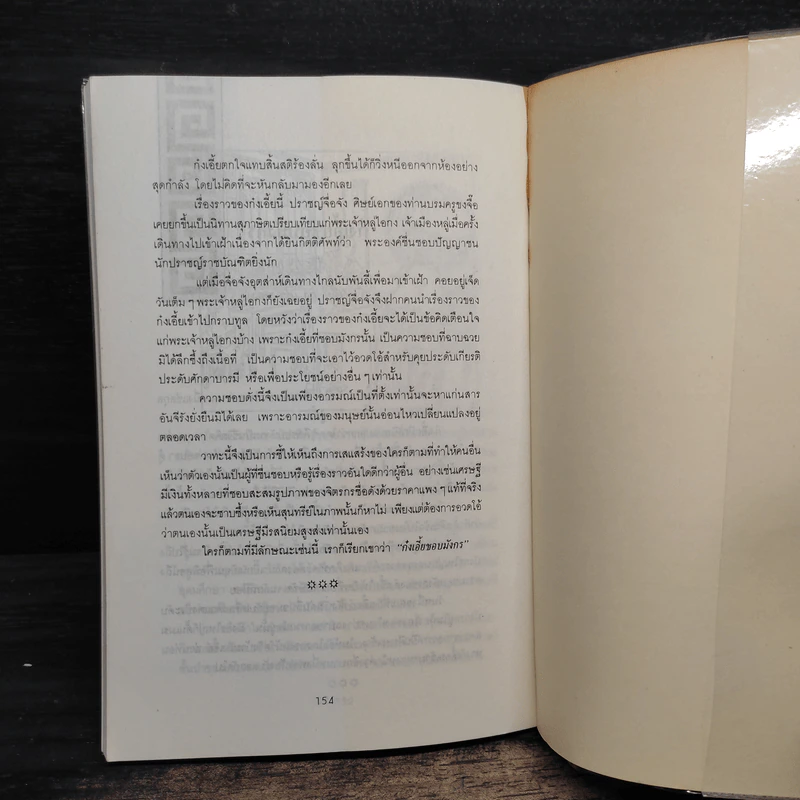 กํงเอี้ยตกใจแทบสิ้นสติร้องลั่น ลุกขึ้นได้ก็วิ่งหนีออกจากห้องอย่าง
สุดกำลัง โดยไม่คิดที่จะหันกลับมามองอีกเลย
เรื่องราวของกํงเอี้ยนี้ ปราชญ์จื่อจัง ศิษย์เอกของท่านบรมครูขงจื๊อ
เคยยกขึ้นเป็นนิทานสุภาษิตเปรียบเทียบแก่พระเจ้าหลู่ไอกง เจ้าเมืองหลู่เมื่อครั้ง
เดินทางไปเข้าเฝ้าเนื่องจากได้ยินกิตติศัพท์ว่า พระองค์ชื่นชอบปัญญาชน
นักปราชญ์ราชบัณฑิตยิ่งนัก
แต่เมื่อจื่อจังอุตส่าห์เดินทางไกลนับพันลี้เพื่อมาเข้าเฝ้า คอยอยู่เจ็ด
วันเต็ม ๆ พระเจ้าหลู่ไอกงก็ยังเฉยอยู่ ปราชญ์จื่อจังจึงฝากคนนำเรื่องราวของ
กํงเอี้ยเข้าไปกราบทูล โดยหวังว่าเรื่องราวของกํงเอี้ยจะได้เป็นข้อคิดเตือนใจ
แก่พระเจ้าหลู่ไอกงบ้าง เพราะกํงเอี้ยที่ชอบมังกรนั้น เป็นความชอบที่ฉาบฉวย
มิได้ลึกซึ้งถึงเนื้อที่ เป็นความชอบที่จะเอาไว้อวดโอ้สำหรับคุยประดับเกียรติ
ประดับศักดาบารมี หรือเพื่อประโยชน์อย่างอื่น ๆ เท่านั้น
ความชอบดั่งนี้จึงเป็นเพียงอารมณ์เป็นที่ตั้งเท่านั้นจะหาแก่นสาร
อันจีรังยั่งยืนมิได้เลย เพราะอารมณ์ของมนุษย์นั้นอ่อนไหวเปลี่ยนแปลงอยู่
ตลอดเวลา
วาทะนี้จึงเป็นการชี้ให้เห็นถึงการเสแสร้งของใครก็ตามที่ทำให้คนอื่น
เห็นว่าตัวเองนั้นเป็นผู้ที่ชื่นชอบหรือรู้เรื่องราวอันใดดีกว่าผู้อื่น อย่างเช่นเศรษฐี
มีเงินทั้งหลายที่ชอบสะสมรูปภาพของจิตรกรชื่อดังด้วยราคาแพง ๆ แท้ที่จริง
แล้วตนเองจะซาบซึ้งหรือเห็นสุนทรีย์ในภาพนั้นก็หาไม่ เพียงแต่ต้องการอวดโอ้
ว่าตนเองนั้นเป็นเศรษฐีมีรสนิยมสูงส่งเท่านั้นเอง
ใครก็ตามที่มีลักษณะเช่นนี้ เราก็เรียกเขาว่า "กํงเอี้ยชอบมังกร"
154